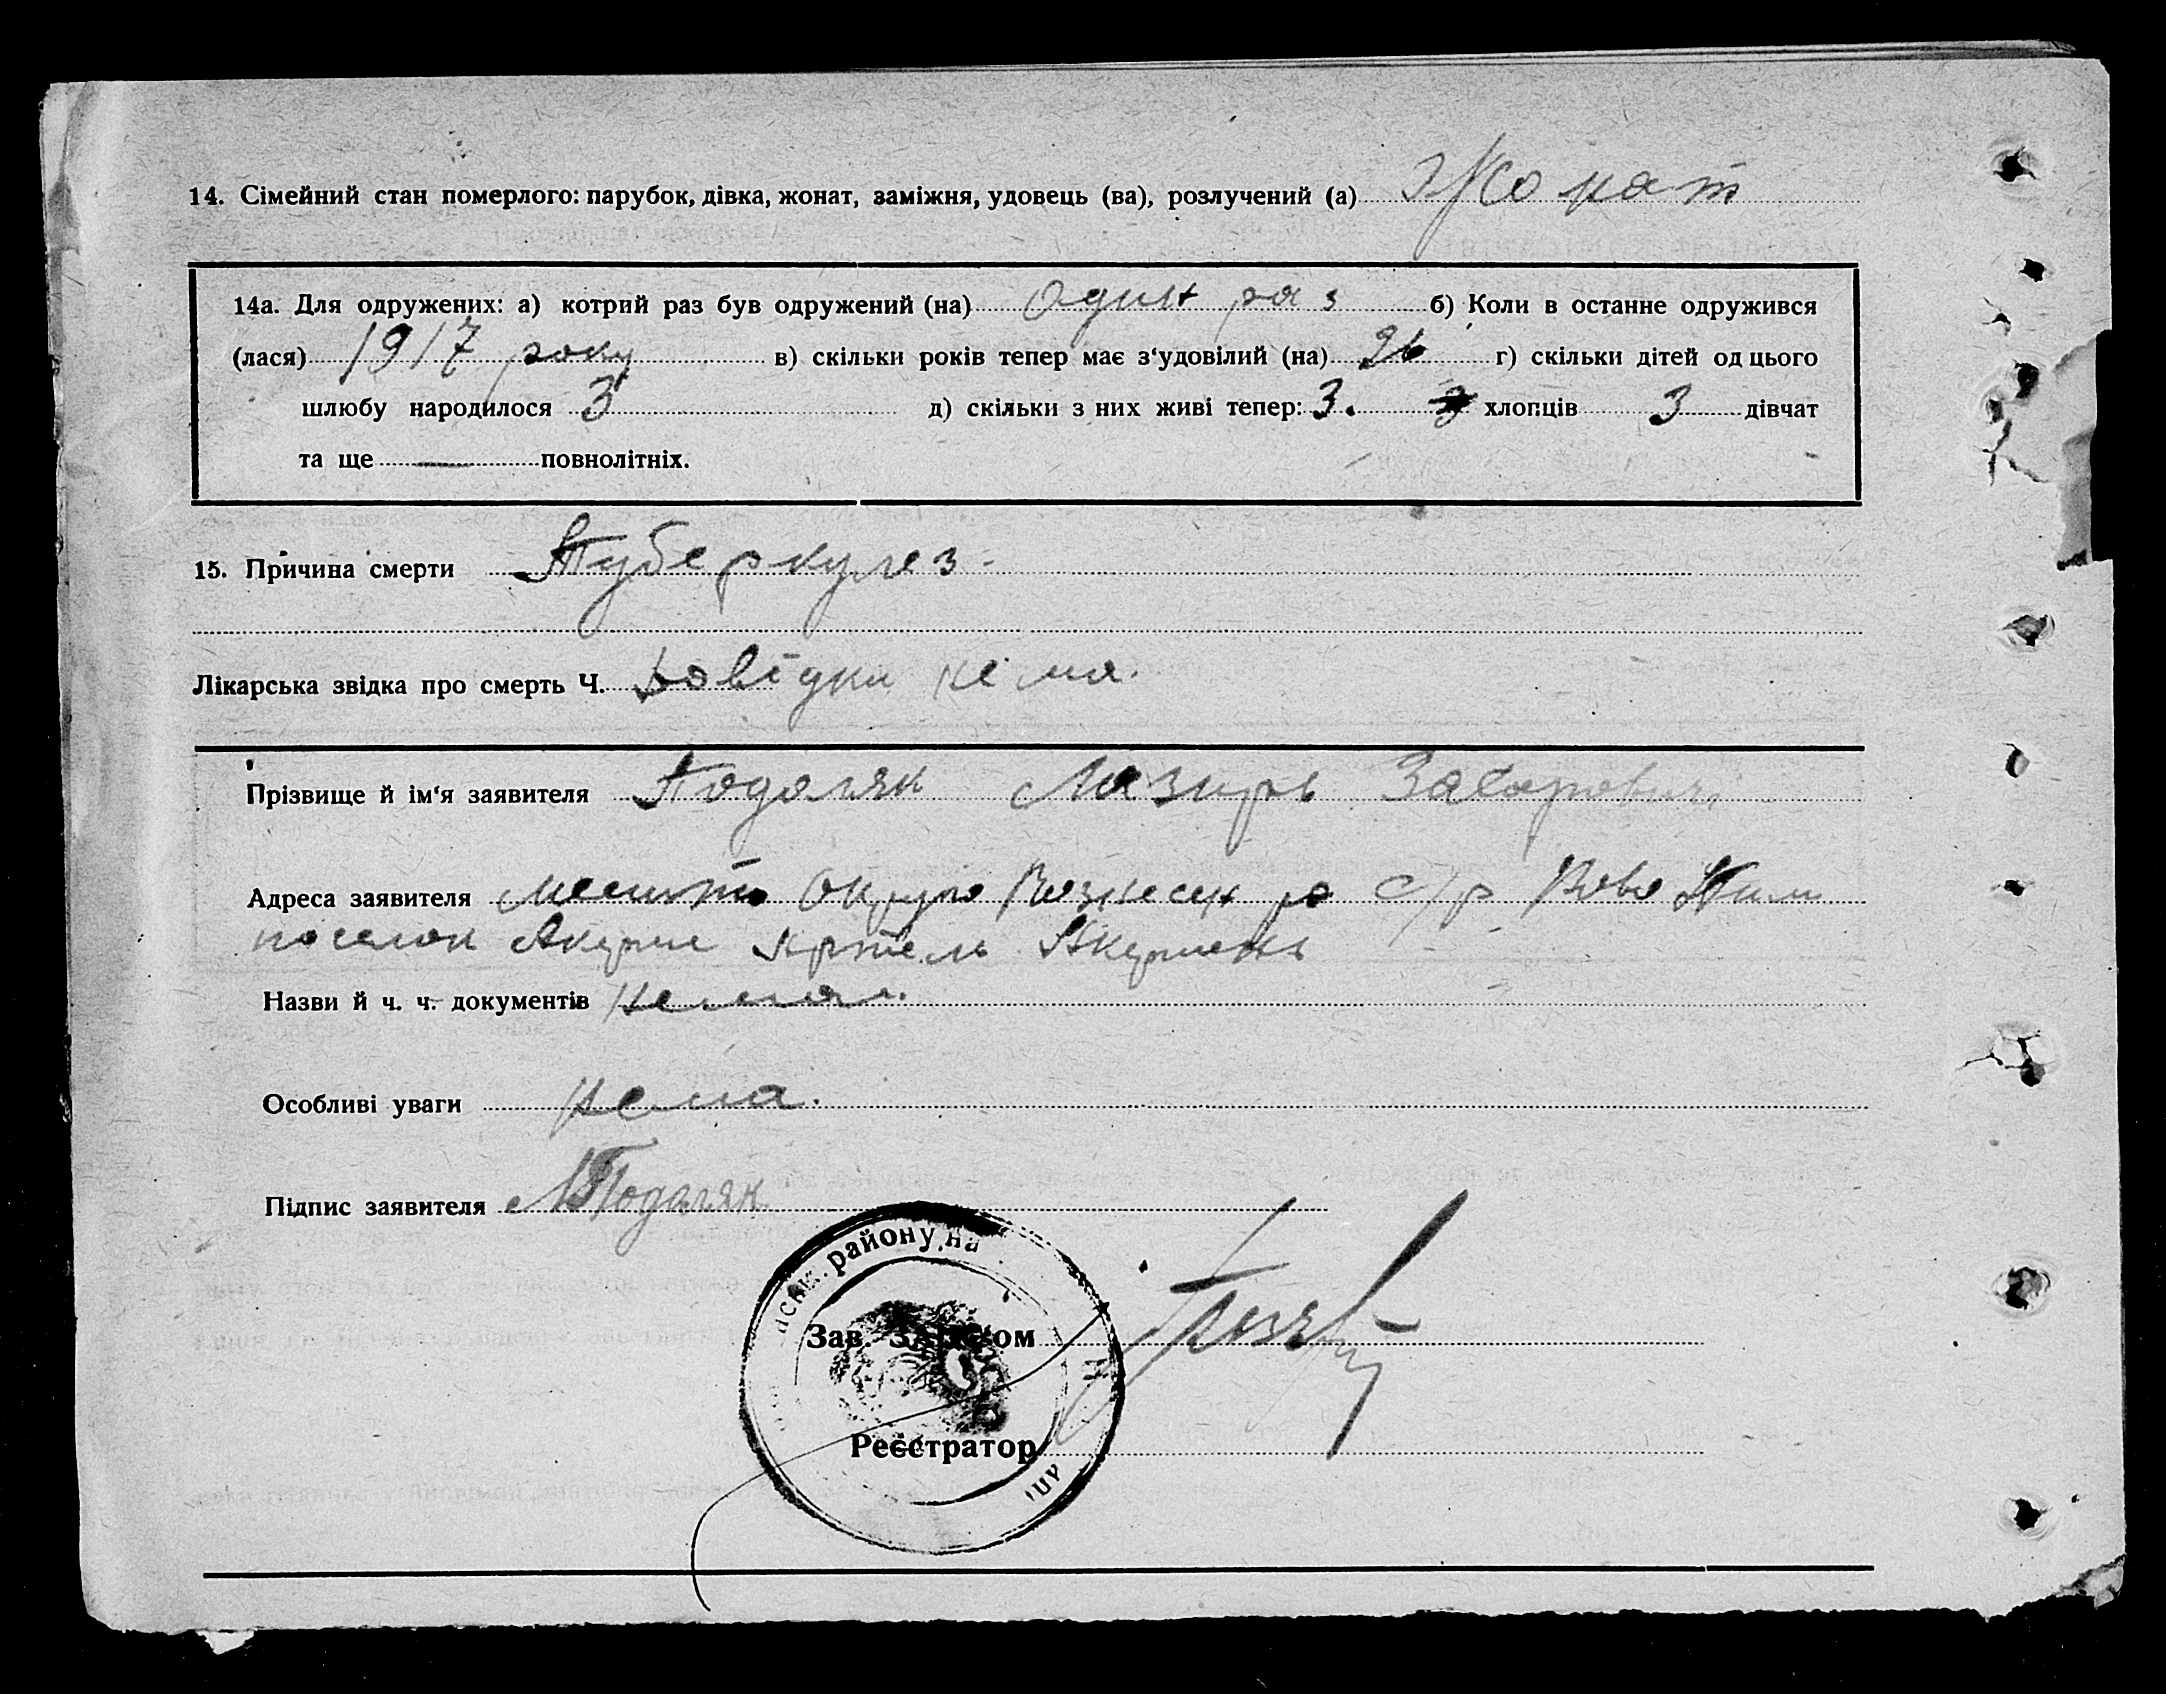 14. Сімейний стан померлого: парубок, дівка, жонат, заміжня, удовець (ва), розлучений (а) Жонат
14а. Для одружених: а) котрий раз був одружений (на) один раз б) Коли в останне одружився
(лася) 1917 року в) скільки років тепер має з‘удовілий (на) 26 г) скільки дітей од цього
шлюбу народилося 3 д) скільки з них живі тепер: 3. хлопців 3 дівчат
та ще — повнолітніх.
15. Причина смерти Туберкулез
Лікарська звідка про смерть Ч. Довідки нема.
Прізвище й ім‘я заявителя Подоляк Лазирь Захарович
Адреса заявителя округо Вознесен ра с/р Ново
поселок Акуше Артель
Назви й ч. ч. документів нема.
Особливі уваги нема.
Підпис заявителя Л Подоляк
району на
Зав. ЗАГС‘ом
Реєстратор